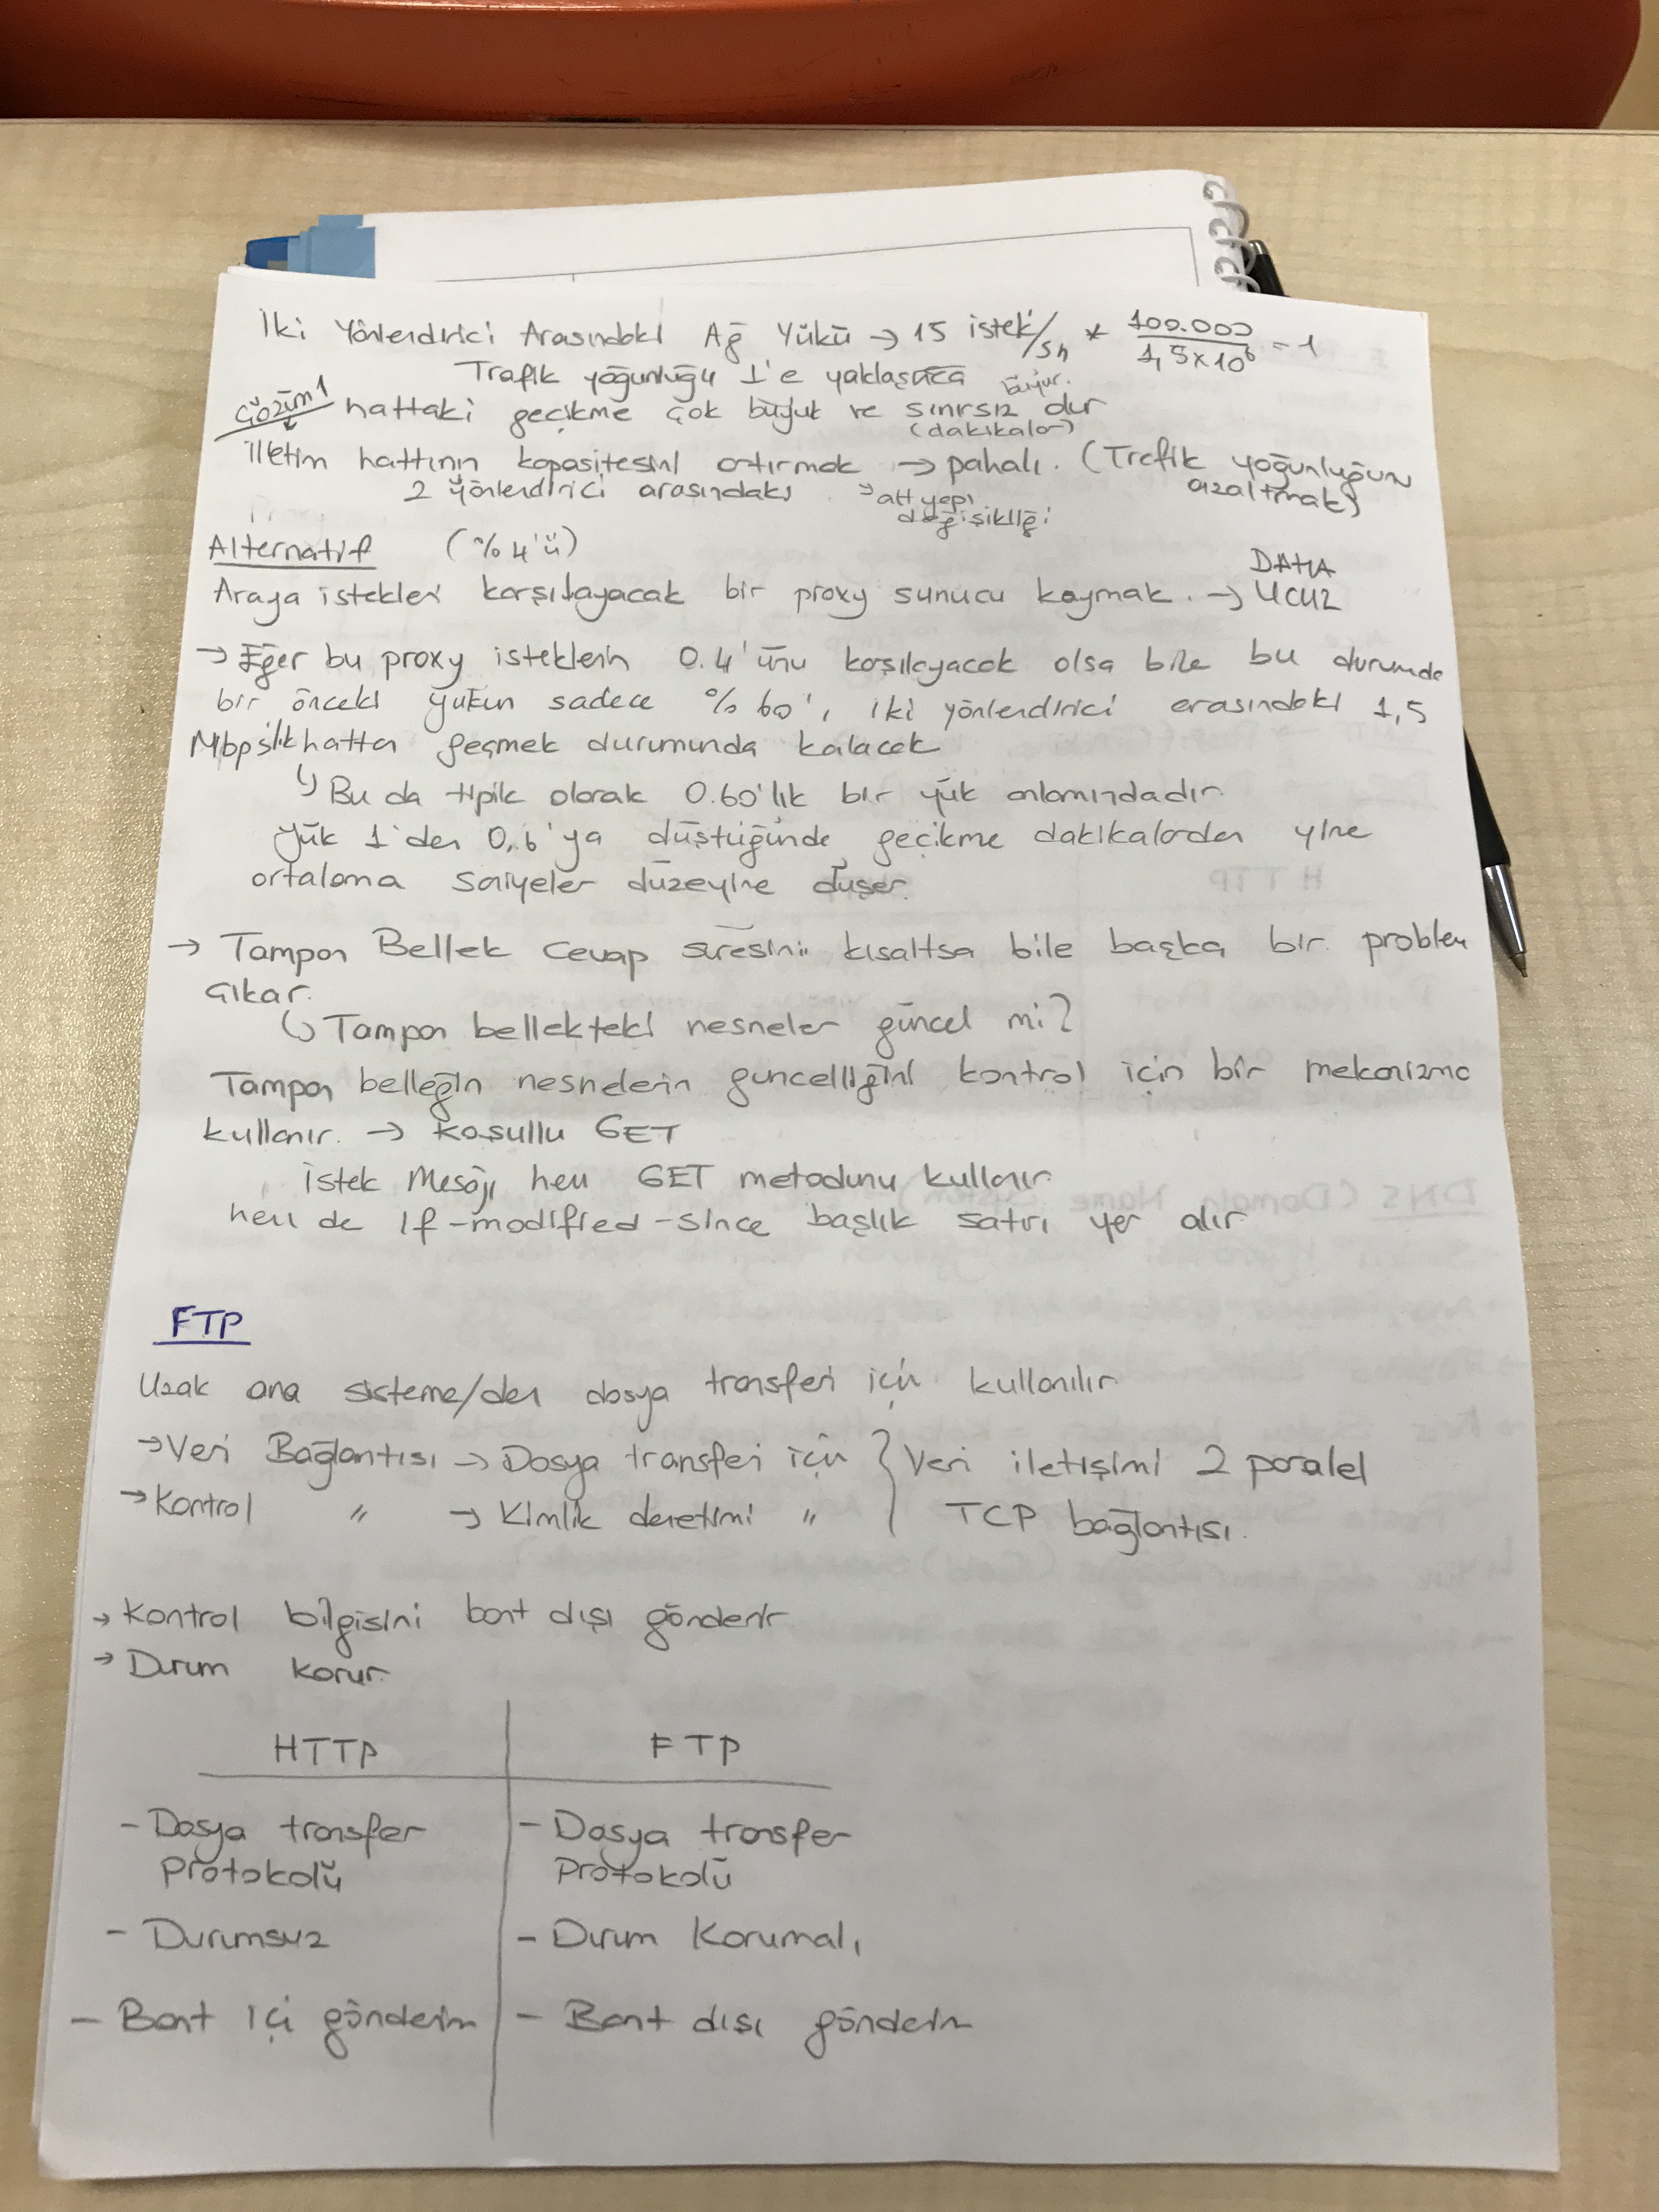 İki Yönlendirici Arasındaki Ağ Yükü → 15 istek/sn * 100.000 / 1,5x10⁶ = 1
Trafik yoğunluğu 1'e yaklaştıca
Çözüm 1 hattaki gecikme çok büyük ve sınırsız büyür. dur
(dakikalar)
İletim hattının kapasitesini artırmak → pahalı. (Trafik yoğunluğun azaltmak)
2 yönlendirici arasındaki → alt yapı değişikliği
Alternatif (%4'ü)
Araya istekleri karşılayacak bir proxy sunucu koymak. → DAHA UCUZ
→ Eğer bu proxy isteklerin 0.4'ünü karşılayacak olsa bile bu durumda
bir önceki yükün sadece %60', iki yönlendirici arasındaki 1,5
Mbps'lik hattan geçmek durumunda kalacak
↳ Bu da tipik olarak 0.60'lık bir yük anlamındadır
Yük 1'den 0,6'ya düştüğünde gecikme dakikalardan yine
ortalama saniyeler düzeyine düşer.
→ Tampon Bellek cevap süresini kısaltsa bile başka bir problem
çıkar.
↳ Tampon bellekteki nesneler güncel mi?
Tampon belleğin nesnelerin güncelliğini kontrol için bir mekanizma
kullanır. → koşullu GET
İstek Mesajı hem GET metodunu kullanır
hem de If-modified-since başlık satırı yer alır
FTP
Uzak ana sisteme/den dosya transferi için kullanılır
→ Veri Bağlantısı → Dosya transferi için } Veri iletişimi 2 paralel
→ Kontrol " → Kimlik denetimi " TCP bağlantısı.
→ Kontrol bilgisini bant dışı gönderir
→ Durum korur.
HTTP FTP
- Dosya transfer - Dosya transfer
Protokolü Protokolü
- Durumsuz - Durum Korumalı
- Bant içi gönderim - Bant dışı gönderim